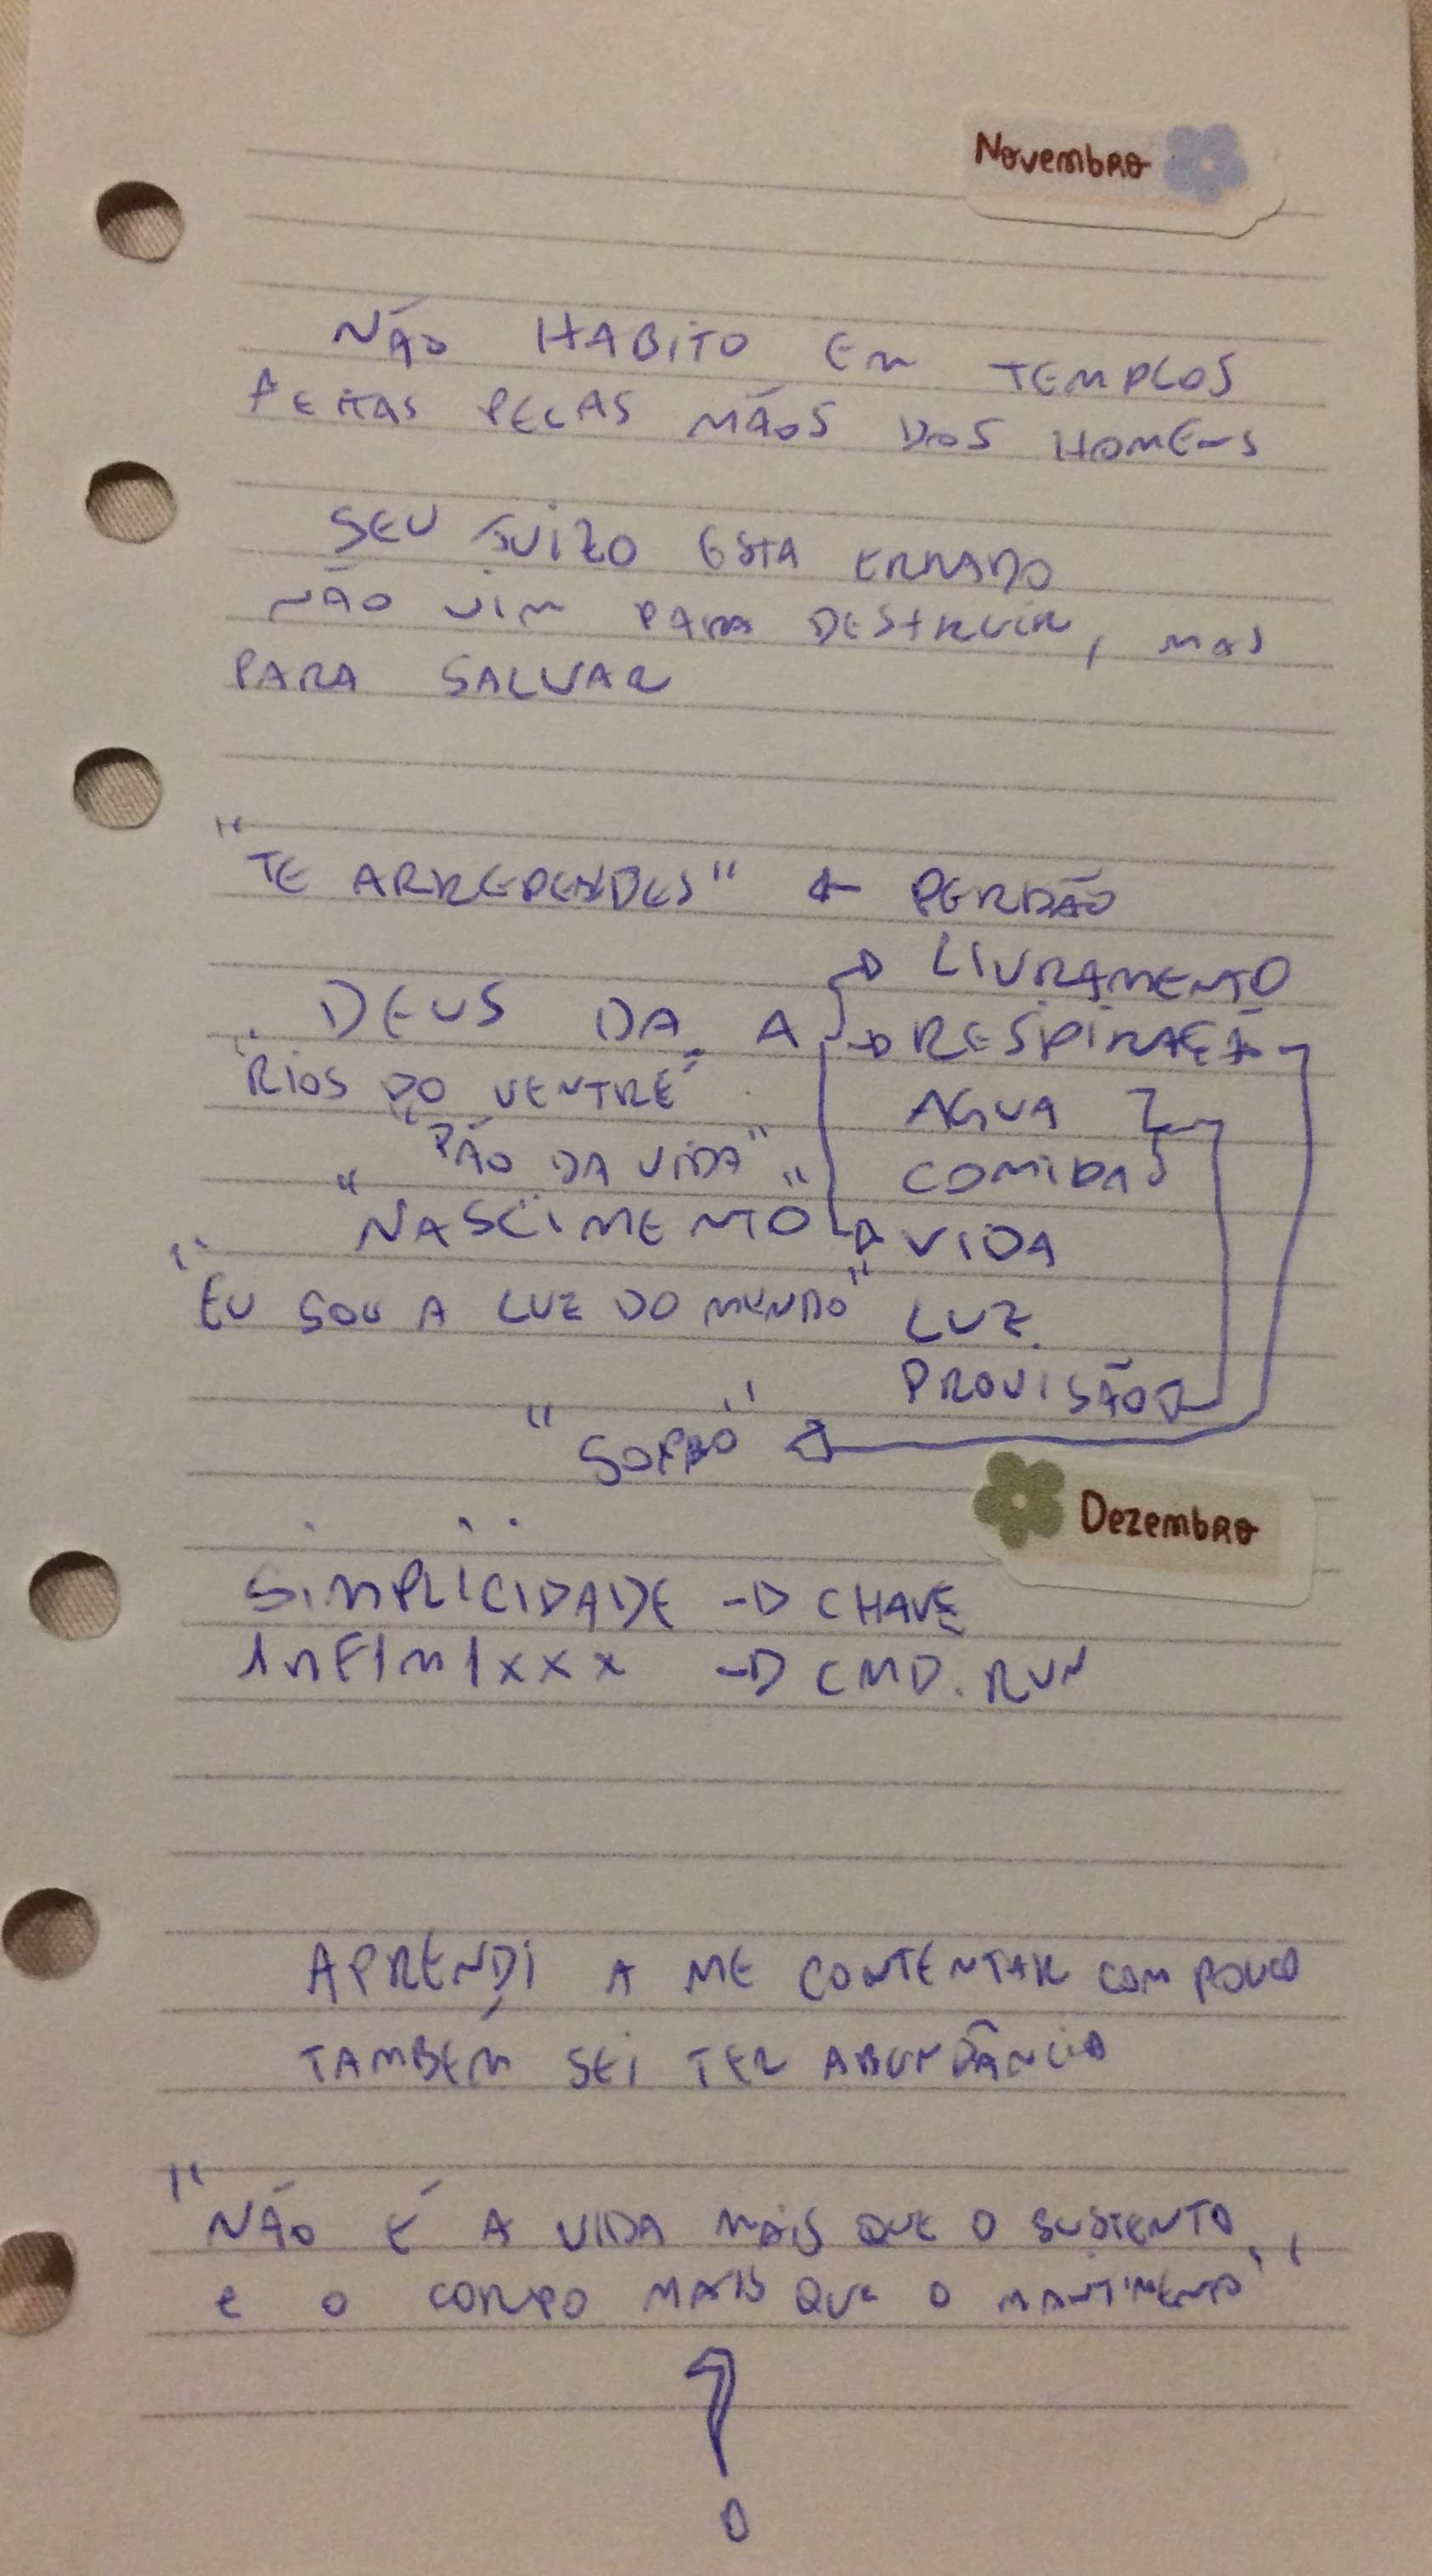 Novembro
NÃO HABITO EM TEMPLOS
FEITAS PELAS MÃOS DOS HOMENS
SEU JUIZO ESTA ERRADO
NÃO VIM PARA DESTRUIR, MAS
PARA SALVAR
"TE ARREPENDES" ← PERDÃO
LIVRAMENTO
DEUS DA A → RESPIRAÇÃO
"RIOS DO VENTRE" AGUA
"PÃO DA VIDA" COMIDA
"NASCIMENTO" VIDA
"EU SOU A LUZ DO MUNDO" LUZ
PROVISÃO
"SOPRO"
Dezembro
SIMPLICIDADE → CHAVE
INFINIXXX → CMD.RUN
APRENDI A ME CONTENTAR COM POUCO
TAMBÉM SEI TER ABUNDÂNCIA
"NÃO É A VIDA MAIS QUE O SUSTENTO,
e o CORPO MAIS QUE O MANTIMENTO"
?